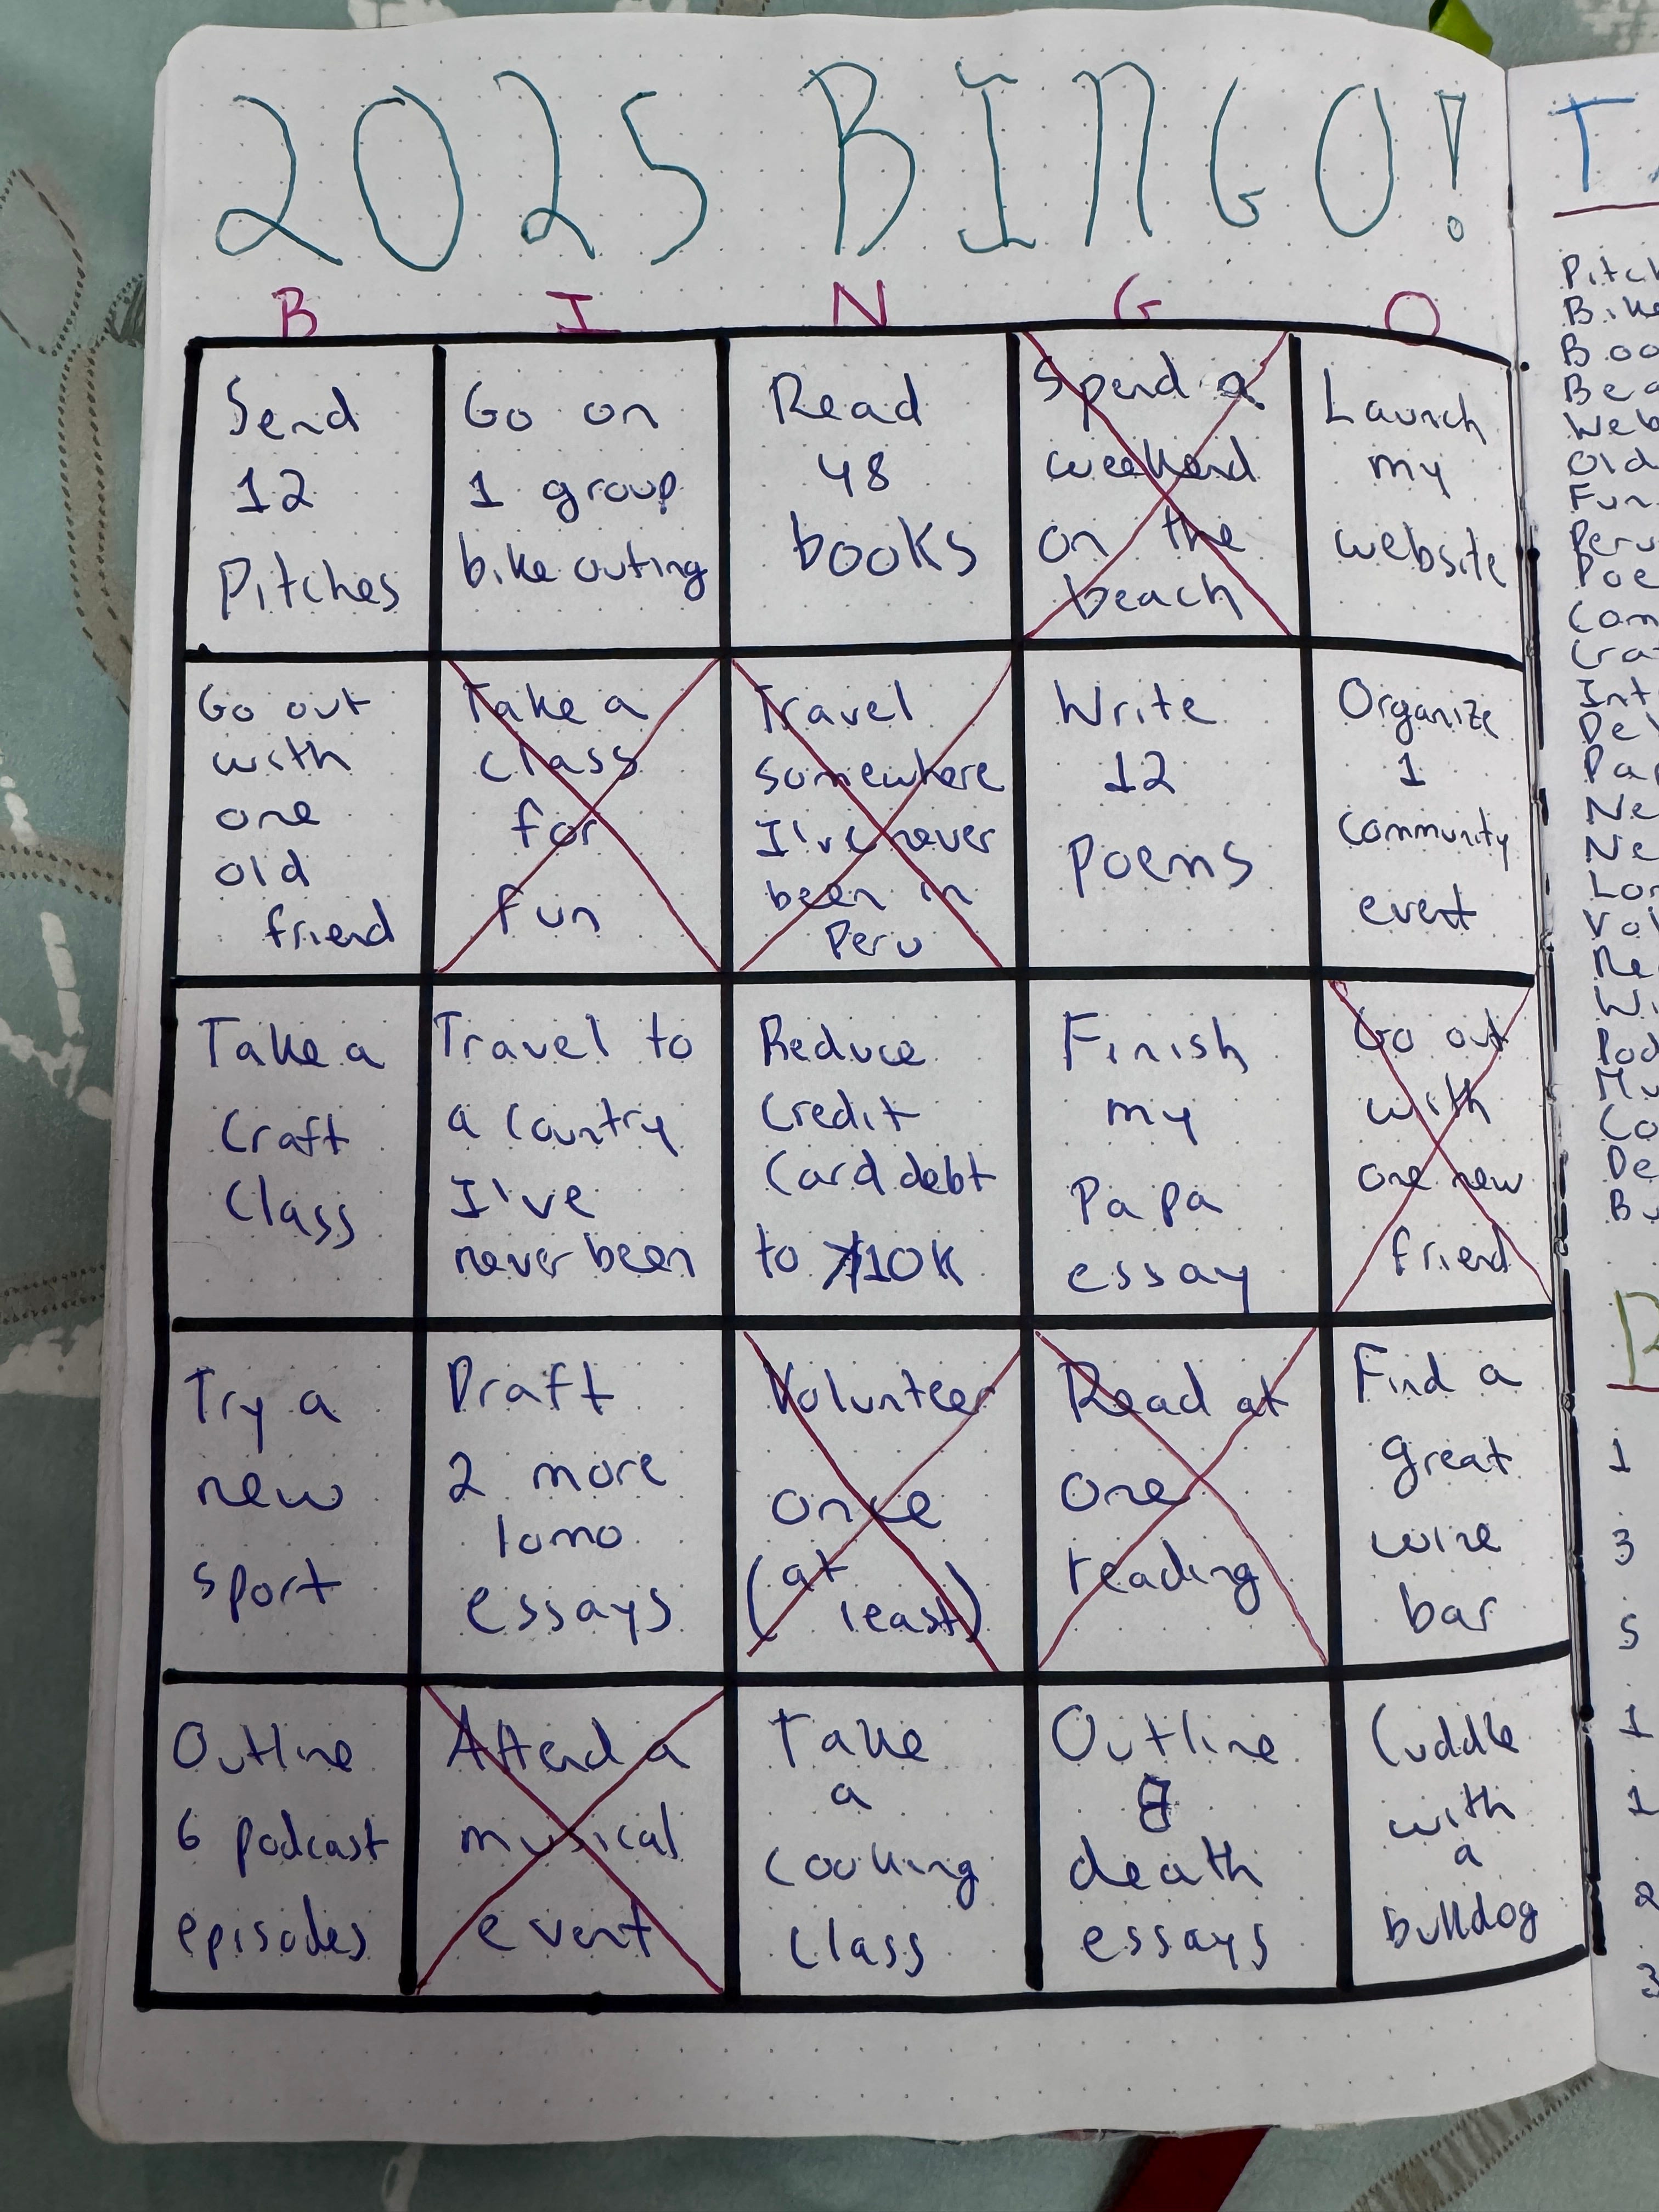 2025 BINGO!
B I N G O
Send
12
Pitches
Go on
1 group
bike outing
Read
48
books
Spend a
weekend
on the
beach
Launch
my
website
Go out
with
one
old
friend
Take a
class
for
fun
Travel
somewhere
I've never
been in
Peru
Write
12
poems
Organize
1
community
event
Take a
Craft
Class
Travel to
a country
I've
never been
Reduce
Credit
Card debt
to 10K
Finish
my
Papa
essay
Go out
with
one new
friend
Try a
new
sport
Draft
2 more
lomo
essays
Volunteer
once
(at
least)
Read at
one
reading
Find a
great
wine
bar
Outline
6 podcast
episodes
Attend a
musical
event
Take
a
cooking
class
Outline
death
essays
Cuddle
with
a
bulldog
T
Pitch
Bike
Boo
Bea
Web
Old
Fun
Peru
Poe
Com
Cra
Int
Del
Pap
Ne
Ne
Lo
Vol
Re
Wi
Pod
Mu
Co
De
Bu
1
3
5
1
1
2
3